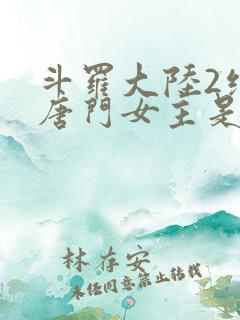 斗羅大陸2
唐門女主是
林存安
未任同意禁止转载